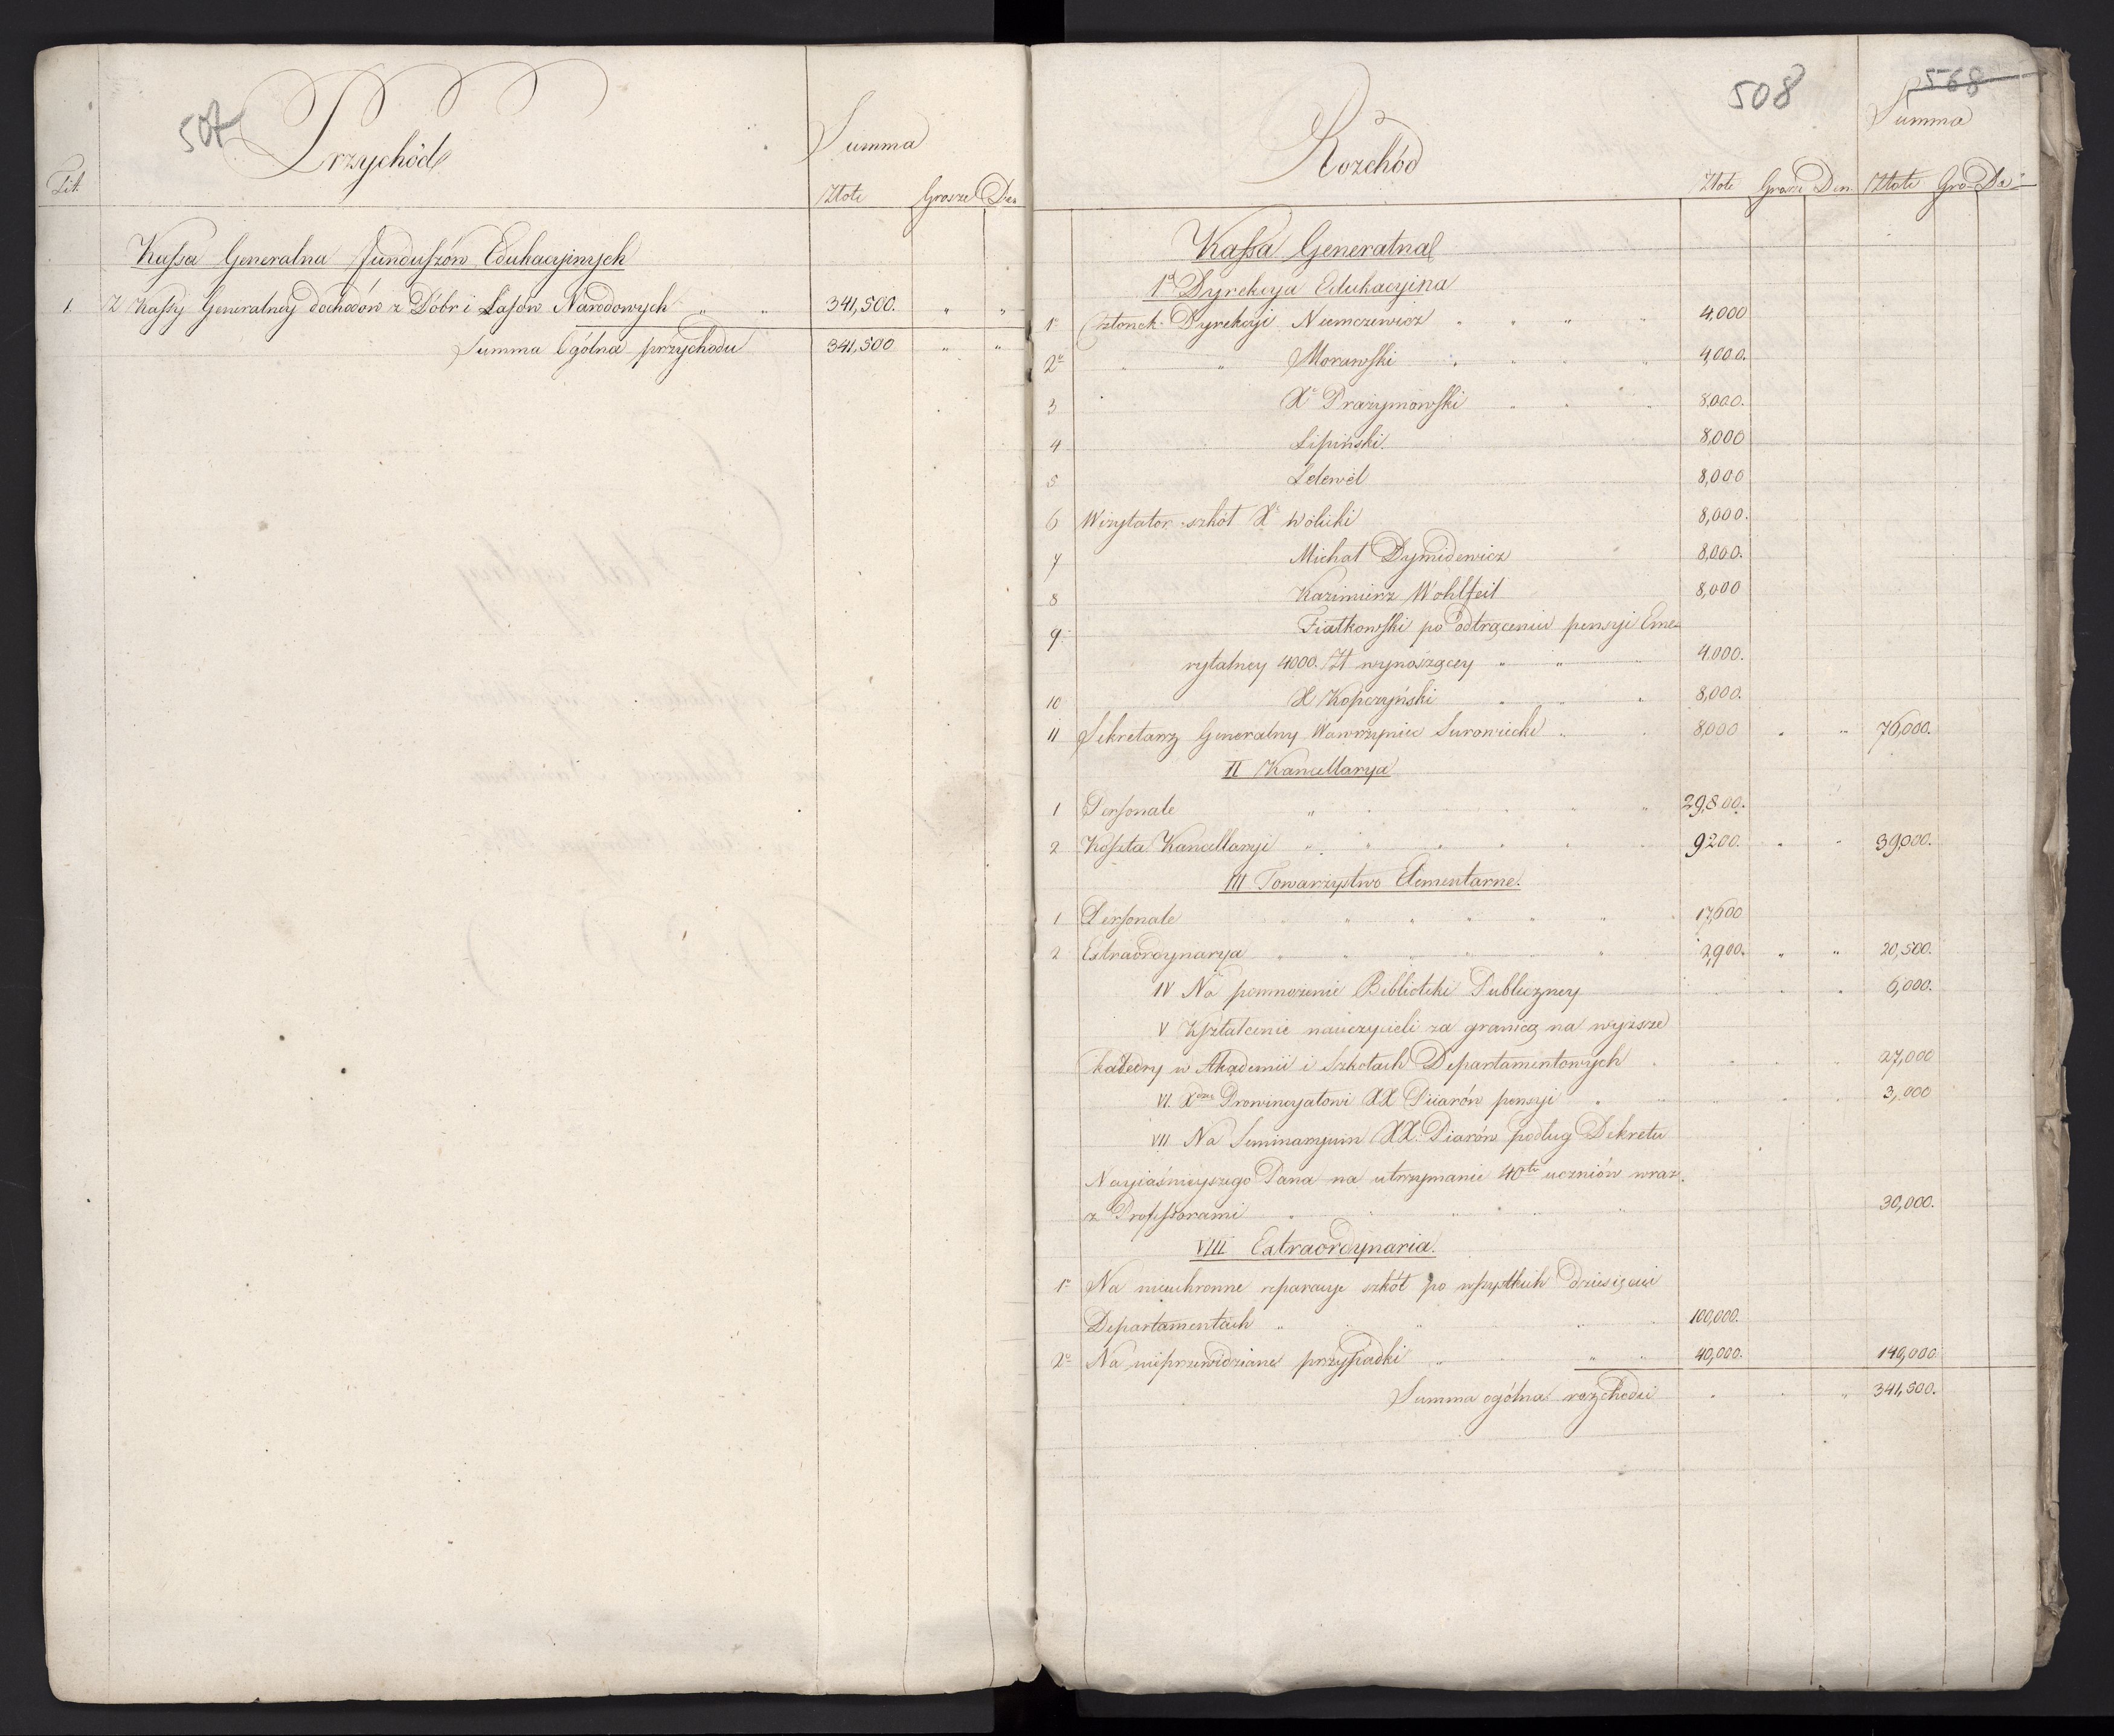 507
Przychód
Summa
Tit.
Złote Grosze Den
Kassa Generalna Funduszów Edukacyinych
1. Z Kassy Generalney dochodów z Dóbr i Lasów Narodowych " " 341,500. " "
Summa Ogólna przychodu 341,500 " "
508
568
Rozchód
Summa
Złote Grosze Den Złote Gro De
Kassa Generalna
1o Dyrekcya Edukacyina
1o Członek Dyrekcyi Niemczewicz " " " " 4,000
2o " " Morawski " " " 4,000.
3 Xc Prażymowski " " " 8,000.
4 Lipiński. 8,000
5 Lelewel 8,000
6 Wizytator szkół Xc Wolicki 8,000.
7 Michał Dymidewicz 8,000.
8 Kazimierz Wohlfeil 8,000
9 Fiatkowski po odtrąceniu pensyi Eme=
rytalney 4000. Zł wynoszącey " " " 4.000.
10 X Kopczyński " " " 8,000.
11 Sekretarz Generalny Wawrzyniec Surowiecki " " 8,000 " " 76,000.
II Kancellarya
1 Personale " " 29,800.
2 Koszta Kancellaryi " " " " " 9200. " " 39,000.
III Towarzystwo Elementarne.
1 Personale " " " " " 17,600
2 Extraordynarya " " " " " 2,900. " " 20,500.
IV Na pomnożenie Biblioteki Publiczney 6,000.
V Kształcenie nauczycieli za granicą na wyższe
katedry w Akademii i Szkołach Departamentowych 27,000
VI. Xdzu Prowincyałowi XX Piiarów pensyi " 3,000
VII Na Seminaryum XX. Piarów podług Dekretu
Nayiaśnieyszego Pana na utrzymanie 40tu uczniów wraz
z Professorami 30,000.
VIII Extraordynaria.
1o Na nieuchronne reparacye szkół po wszystkich dziesięciu
Departamentach " " " 100,000.
2o Na nieprzewidziane przypadki " " " 40,000. 140,000
Summa ogólna rozchodu " " " 341,500.